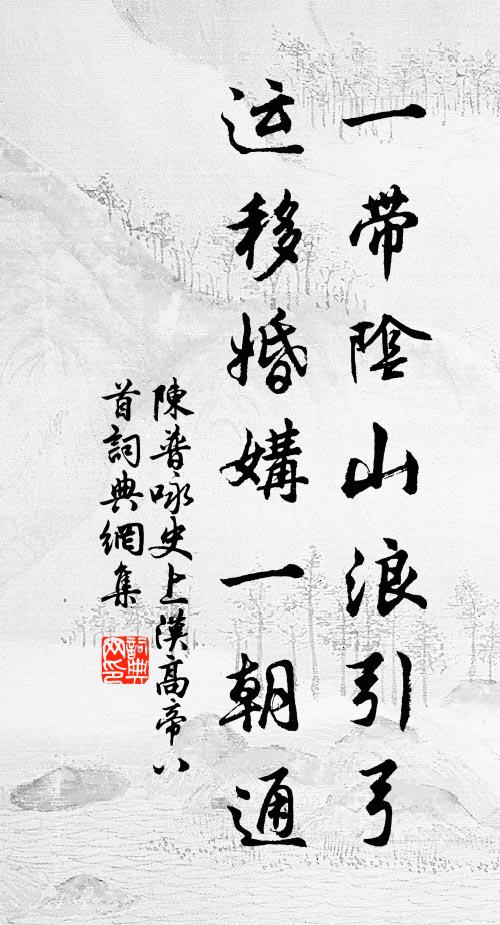 一帶陰山浪引弓
运移婚媾一朝通
陳普咏史上漢高帝八
首詞典網集
詞典网印